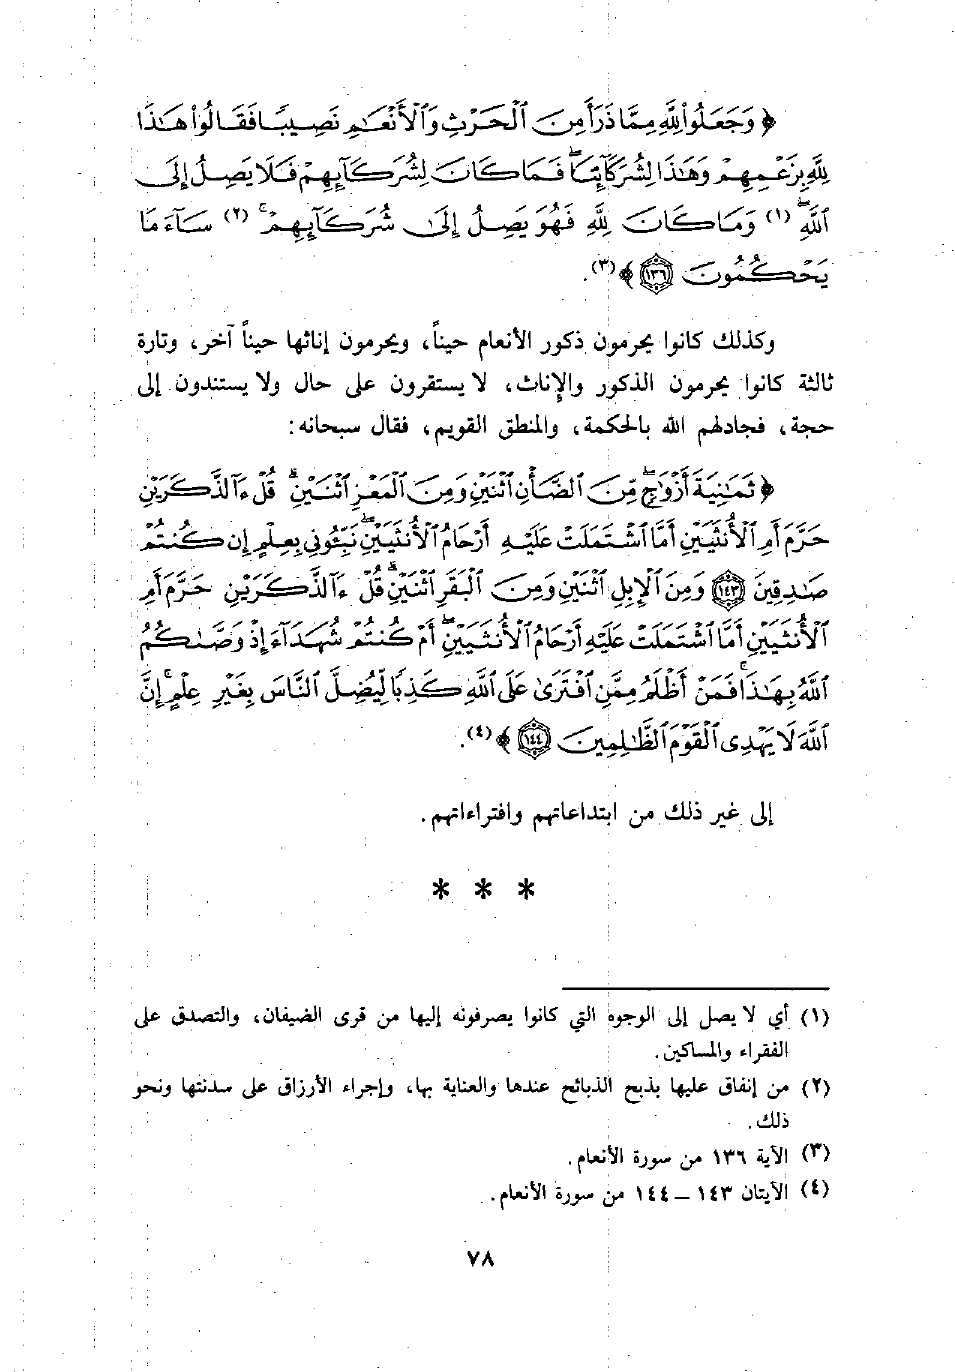 ﴿ وَجَعَلُوا۟ لِلَّهِ مِمَّا ذَرَأَ مِنَ ٱلْحَرْثِ وَٱلْأَنْعَـٰمِ نَصِيبًا فَقَالُوا۟ هَـٰذَا
لِلَّهِ بِزَعْمِهِمْ وَهَـٰذَا لِشُرَكَآئِنَا ۖ فَمَا كَانَ لِشُرَكَآئِهِمْ فَلَا يَصِلُ إِلَى
ٱللَّهِ ۖ (١) وَمَا كَانَ لِلَّهِ فَهُوَ يَصِلُ إِلَىٰ شُرَكَآئِهِمْ ۗ (٢) سَآءَ مَا
يَحْكُمُونَ ١٣٦ ﴾(٣).
وكذلك كانوا يحرمون ذكور الأنعام حيناً، ويحرمون إناثها حيناً آخر، وتارة
ثالثة كانوا يحرمون الذكور والإناث، لا يستقرون على حال ولا يستندون إلى
حجة، فجادلهم الله بالحكمة، والمنطق القويم، فقال سبحانه:
﴿ ثَمَـٰنِيَةَ أَزْوَٰجٍ ۖ مِّنَ ٱلضَّأْنِ ٱثْنَيْنِ وَمِنَ ٱلْمَعْزِ ٱثْنَيْنِ ۗ قُلْ ءَآلذَّكَرَيْنِ
حَرَّمَ أَمِ ٱلْأُنثَيَيْنِ أَمَّا ٱشْتَمَلَتْ عَلَيْهِ أَرْحَامُ ٱلْأُنثَيَيْنِ ۖ نَبِّـُٔونِى بِعِلْمٍ إِن كُنتُمْ
صَـٰدِقِينَ ١٤٣ وَمِنَ ٱلْإِبِلِ ٱثْنَيْنِ وَمِنَ ٱلْبَقَرِ ٱثْنَيْنِ ۗ قُلْ ءَآلذَّكَرَيْنِ حَرَّمَ أَمِ
ٱلْأُنثَيَيْنِ أَمَّا ٱشْتَمَلَتْ عَلَيْهِ أَرْحَامُ ٱلْأُنثَيَيْنِ ۖ أَمْ كُنتُمْ شُهَدَآءَ إِذْ وَصَّىٰكُمُ
ٱللَّهُ بِهَـٰذَا ۚ فَمَنْ أَظْلَمُ مِمَّنِ ٱفْتَرَىٰ عَلَى ٱللَّهِ كَذِبًا لِّيُضِلَّ ٱلنَّاسَ بِغَيْرِ عِلْمٍ ۗ إِنَّ
ٱللَّهَ لَا يَهْدِى ٱلْقَوْمَ ٱلظَّـٰلِمِينَ ١٤٤ ﴾(٤).
إلى غير ذلك من ابتداعاتهم وافتراءاتهم.
* * *
(١) أي لا يصل إلى الوجوه التي كانوا يصرفونه إليها من قرى الضيفان، والتصدق على
الفقراء والمساكين.
(٢) من إنفاق عليها بذبح الذبائح عندها والعناية بها، وإجراء الأرزاق على سدنتها ونحو
ذلك.
(٣) الآية ١٣٦ من سورة الأنعام.
(٤) الآيتان ١٤٣ – ١٤٤ من سورة الأنعام.
٧٨